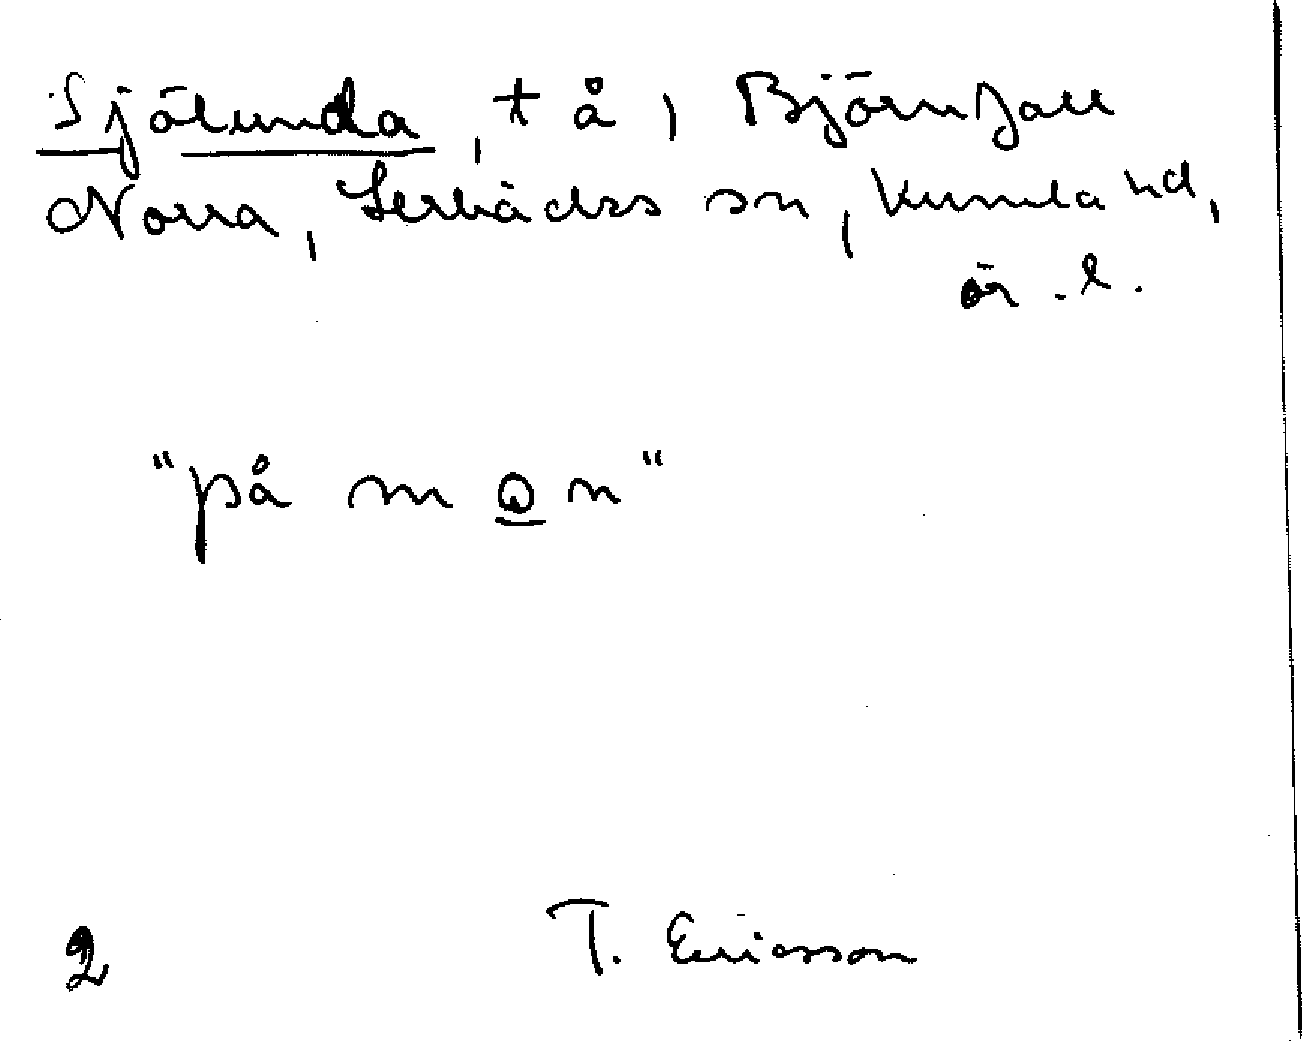 Sjölunda, t å, Björnfall
Norra, Lerbäcks sn, Kumla hd,
ör. l.
"på m o n"
2 T. Ericsson